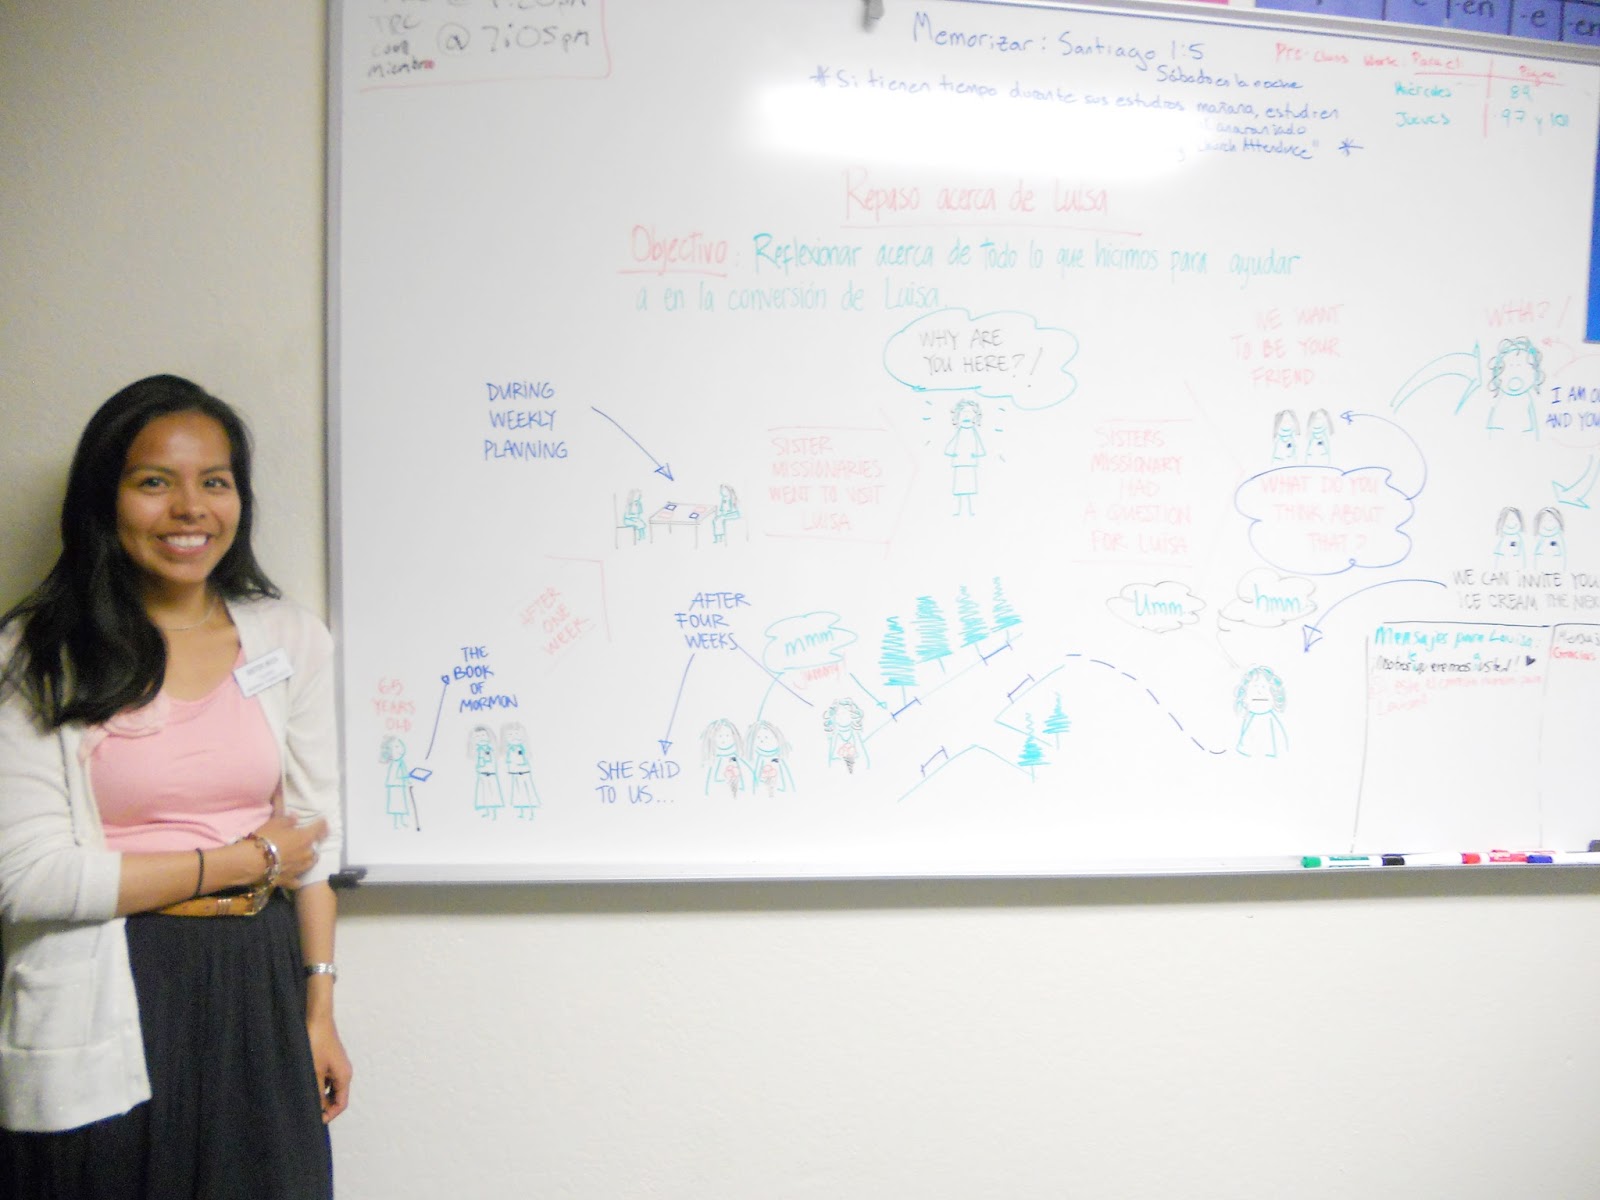 TRC
com
miembros
@ 7:20pm
@ 7:05pm
-en
-e
-en
Memorizar: Santiago 1:5
Sábado en la noche
*Si tienen tiempo durante sus estudios mañana, estudien
anaranjado
Church Attendance" *
Pre-class Work: Para el:
Página
Miércoles 89
Jueves 97 y 101
Repaso acerca de Luisa
Objectivo: Reflexionar acerca de todo lo que hicimos para ayudar
a en la conversión de Luisa.
DURING
WEEKLY
PLANNING
SISTER
MISSIONARIES
WENT TO VISIT
LUISA
WHY ARE
YOU HERE?!
SISTERS
MISSIONARY
HAD
A QUESTION
FOR LUISA
WE WANT
TO BE YOUR
FRIEND
WHAT DO YOU
THINK ABOUT
THAT?
WHA?!
I AM
AND YOU
WE CAN INVITE YOU
ICE CREAM THE
Umm
hmm
AFTER
FOUR
WEEKS
mmm
yummy
SHE SAID
TO US...
AFTER
ONE
WEEK
THE
BOOK
OF
MORMON
65
YEARS
OLD
Mensajes para Louisa:
Gracias